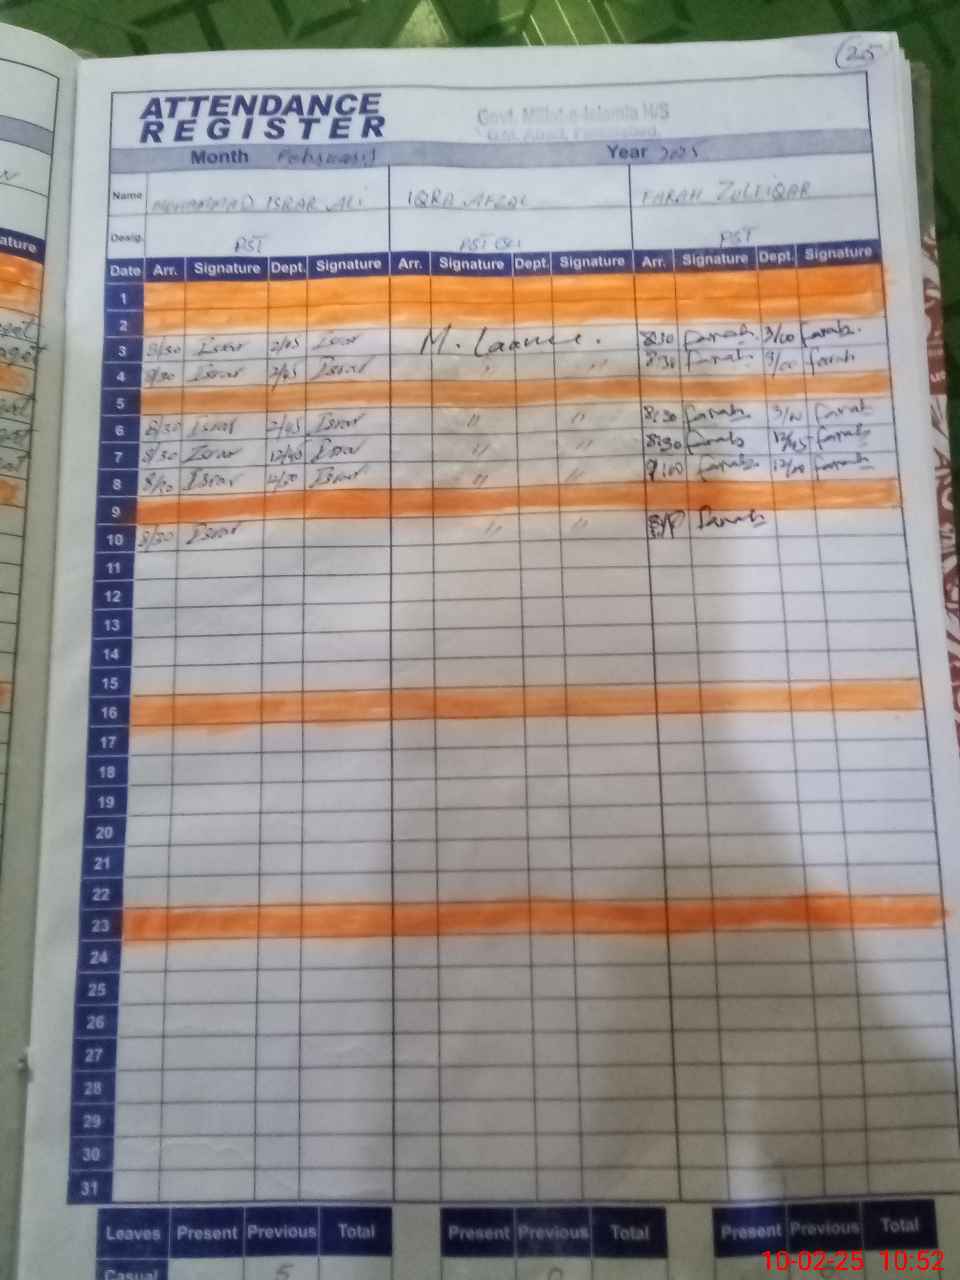 25
ATTENDANCE
REGISTER
Govt. Millat-e-Islamia H/S
Month Year 2025
Name MUHAMMAD ISRAR ALI IQRA AFZAL FARAH ZULFIQAR
Desig. PST PST PST
ature
Date Arr. Signature Dept. Signature Arr. Signature Dept. Signature Arr. Signature Dept. Signature
1
2
3 8/30 Israr 2/45 Israr M. 8:30 Farah 3/00 Farah
4 8/30 Israr 2/45 Israr " " 8:30 Farah 3/00 Farah
5
6 8/30 Israr 2/45 Israr " " 8:30 Farah 3/00 Farah
7 8/30 Israr 12/45 Israr " " 8:30 Farah 12/45 Farah
8 Israr Israr " " 9:00 Farah 12/00 Farah
9
10 8/30 Israr " " Farah
11
12
13
14
15
16
17
18
19
20
21
22
23
24
25
26
27
28
29
30
31
Leaves Present Previous Total Present Previous Total Present Previous Total
Casual 5 0
10-02-25 10:52